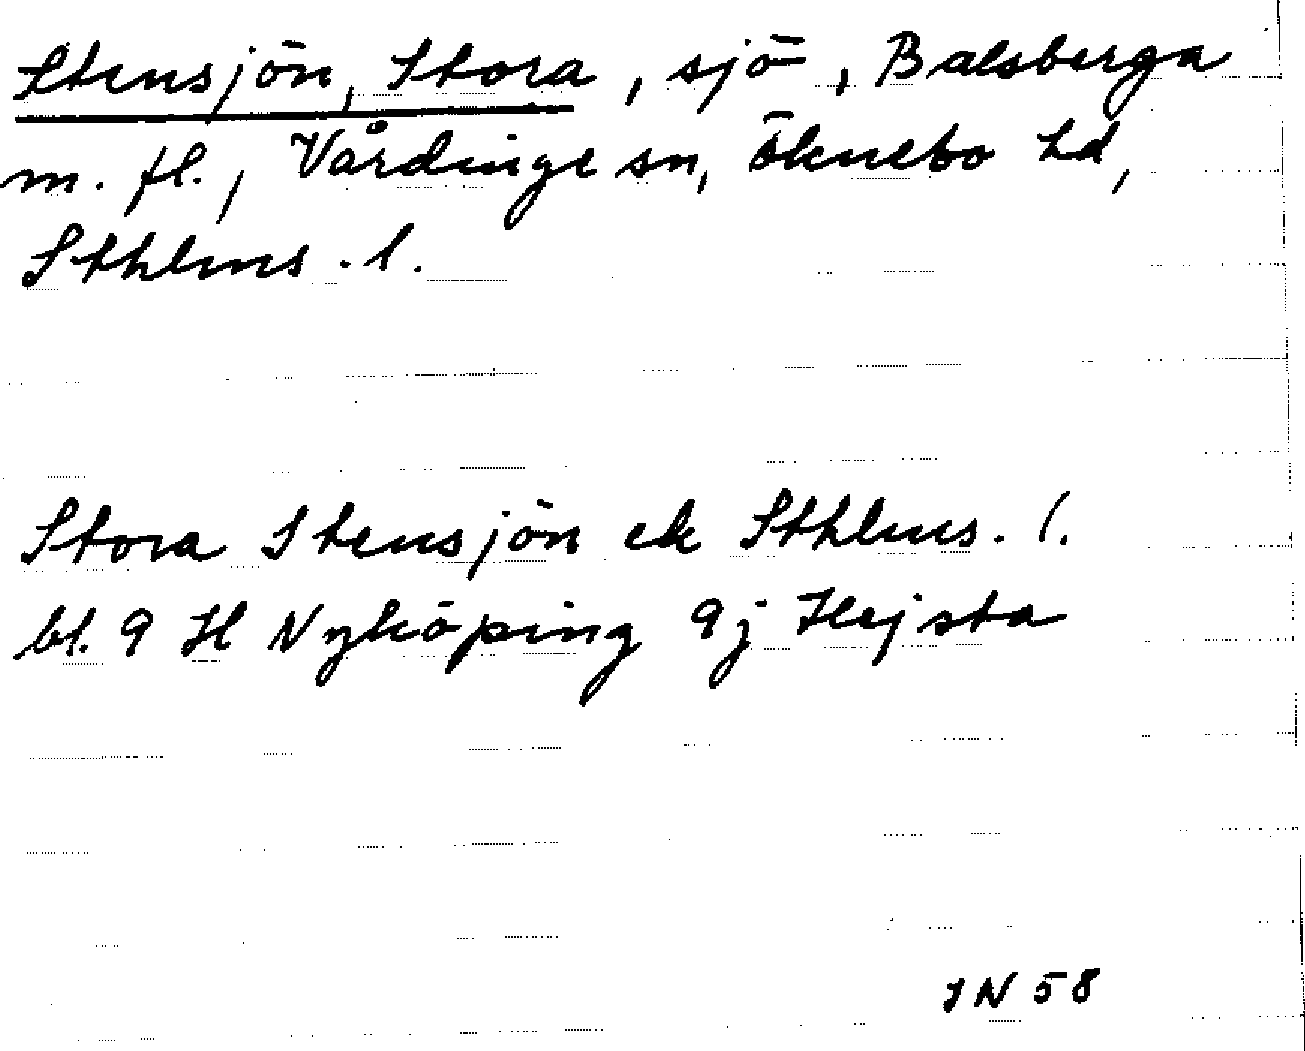 Stensjön, Stora, sjö, Balsberga
m. fl., Vårdinge sn, Öknebo hd,
Sthlms. l.
Stora Stensjön ek Sthlms. l.
bl. 9 H Nyköping 9j Hejsta
JN 58